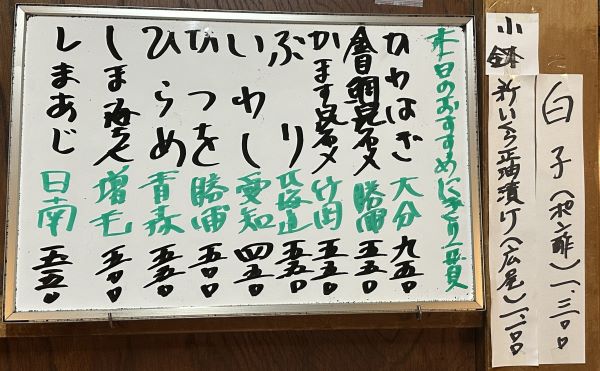 小鉢
白子(ポン酢)一、三〇〇
新いくら正油漬け(広尾)一、一〇〇
本日のおすすめにぎり一貫
かわはぎ 大分 九五〇
金目鯛昆布〆 勝浦 五五〇
かます昆布〆 竹岡 五五〇
ぶり 北海道 五五〇
いわし 愛知 四五〇
かつを 勝浦 五〇〇
ひらめ 青森 五五〇
しま海老 増毛 五〇〇
しまあじ 日南 五五〇